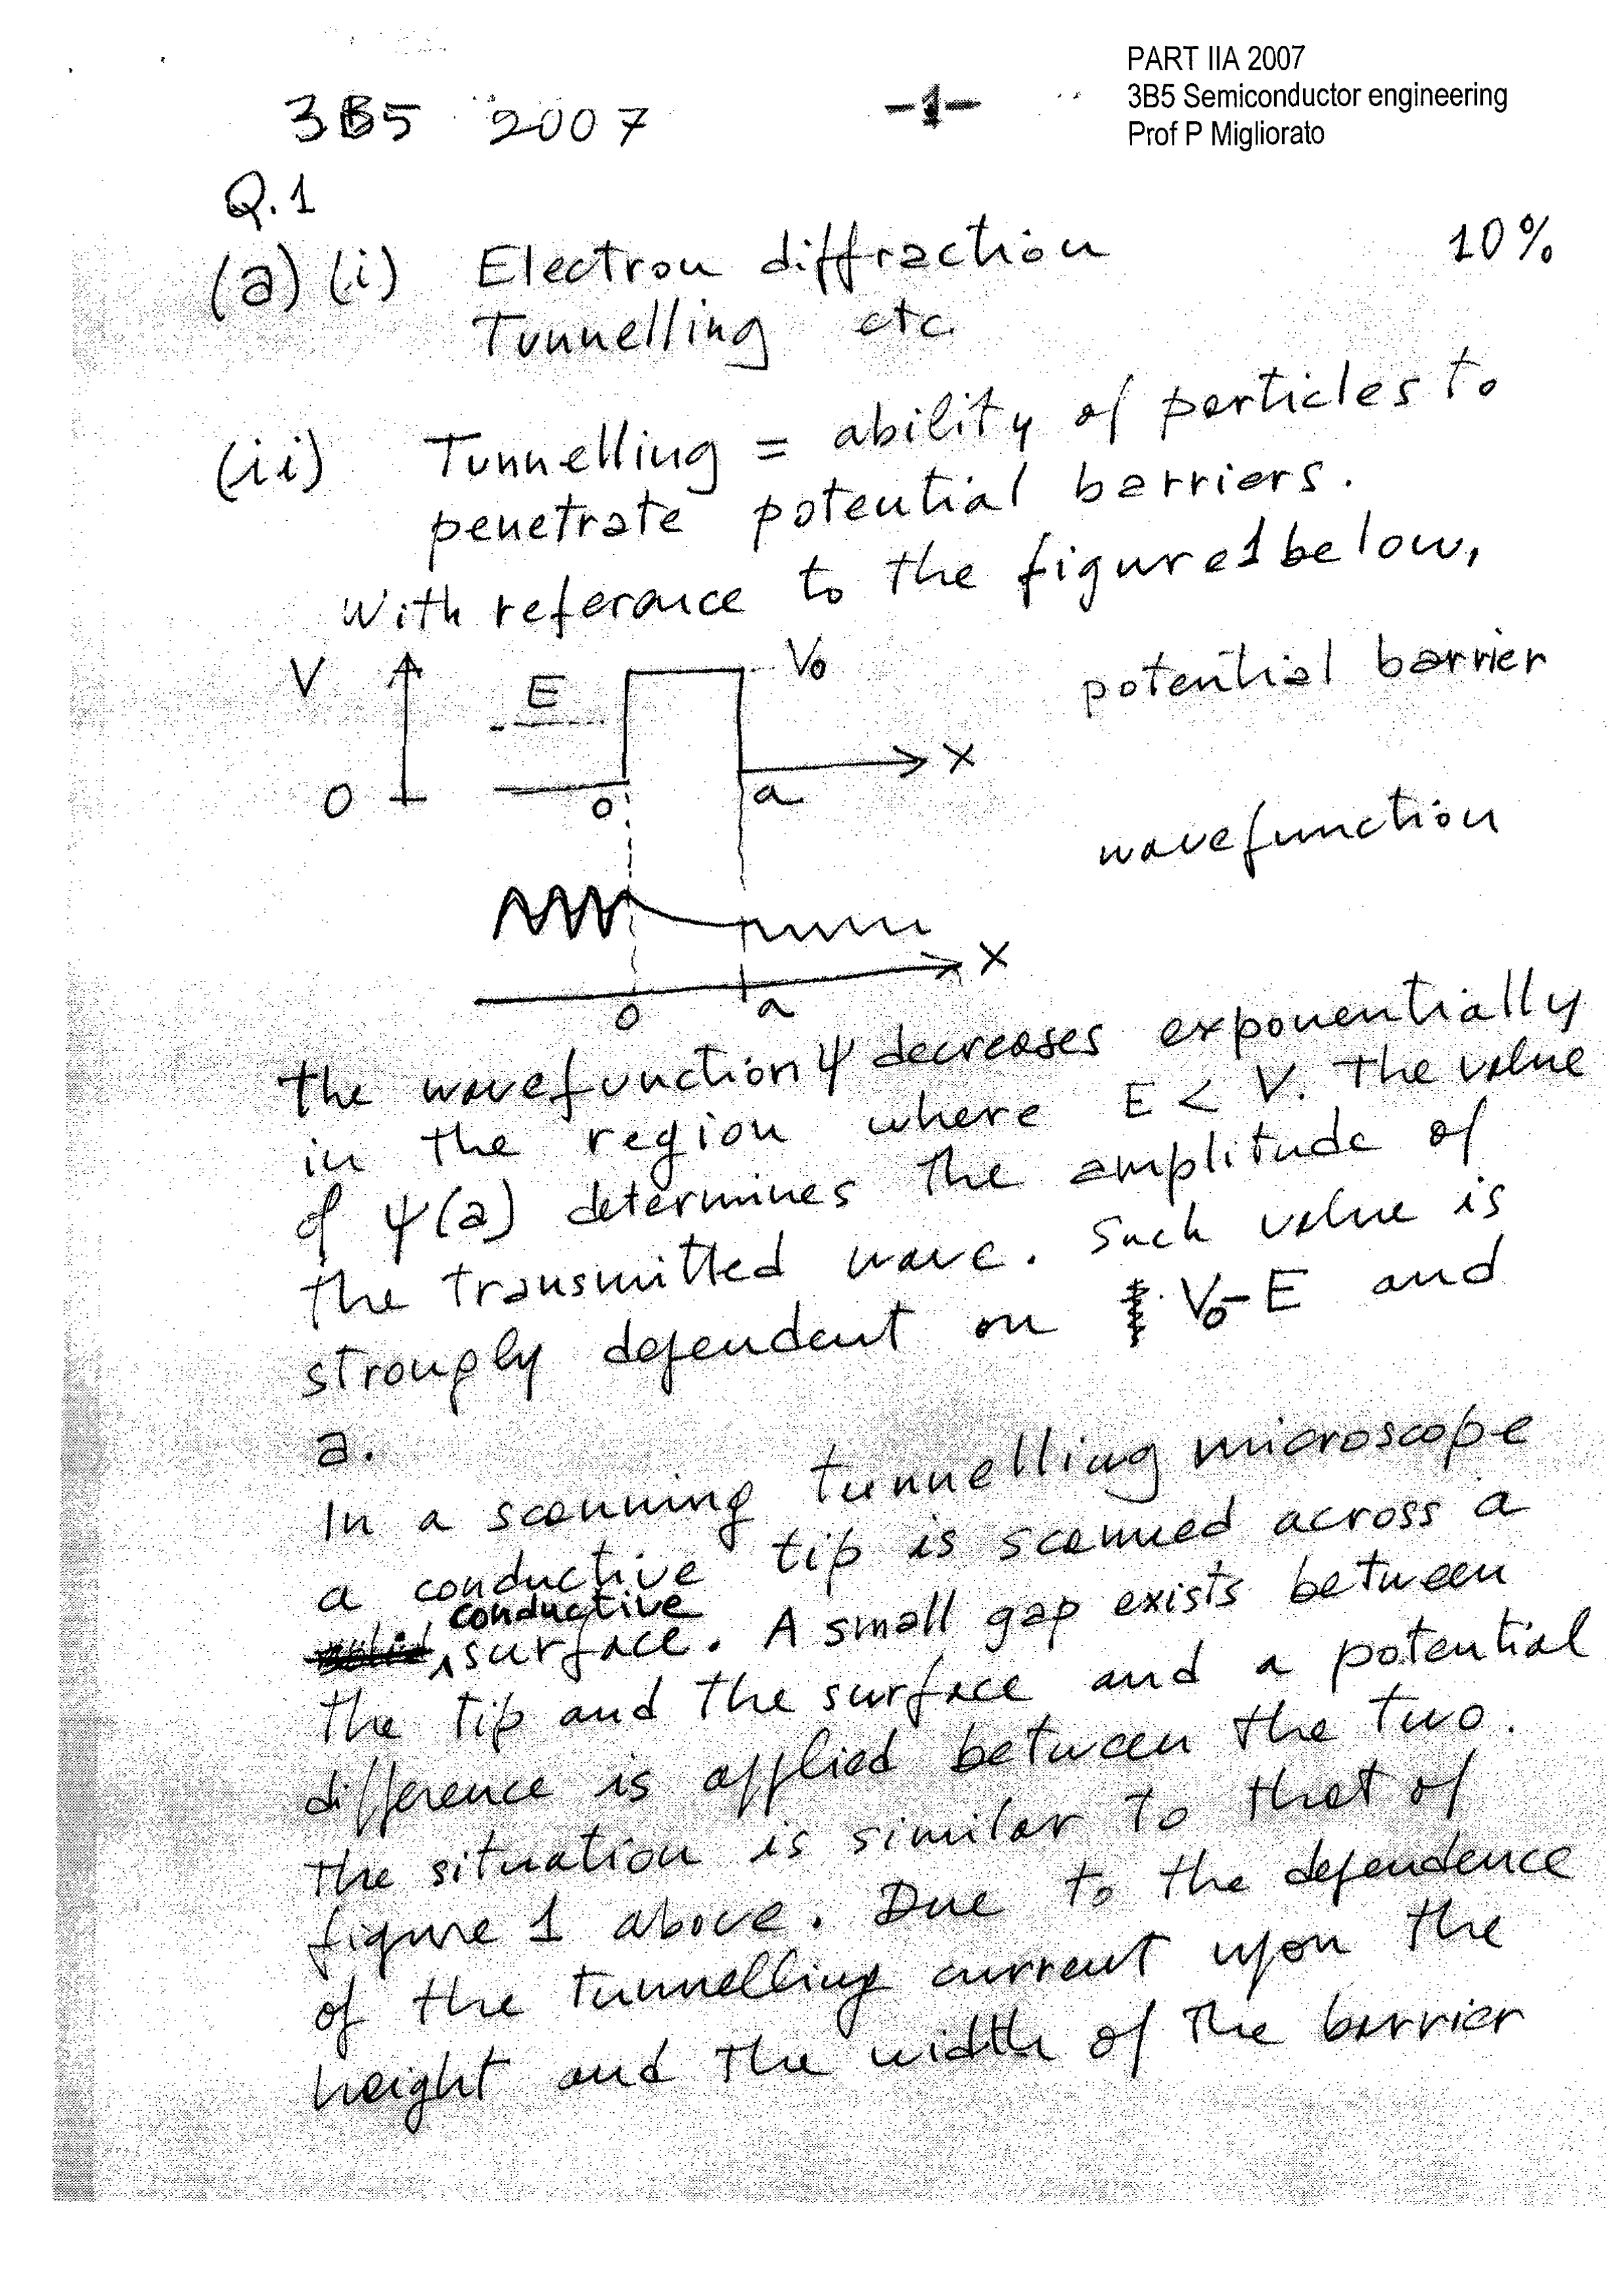 PART IIA 2007
3B5 Semiconductor engineering
Prof P Migliorato
3B5 2007
-1-
Q.1
(a) (i) Electron diffraction 10%
Tunnelling etc
(ii) Tunnelling = ability of particles to
penetrate potential barriers.
With reference to the figure 1 below,
V E V₀ potential barrier
0 0 a x
wavefunction
x
0 a
the wavefunction ψ decreases exponentially
in the region where E < V. The value
of ψ(a) determines the amplitude of
the transmitted wave. Such value is
strongly dependent on V₀-E and
a.
In a scanning tunnelling microscope
a conductive tip is scanned across a
conductive
surface. A small gap exists between
the tip and the surface and a potential
difference is applied between the two.
The situation is similar to that of
figure 1 above. Due to the dependence
of the tunnelling current upon the
height and the width of the barrier